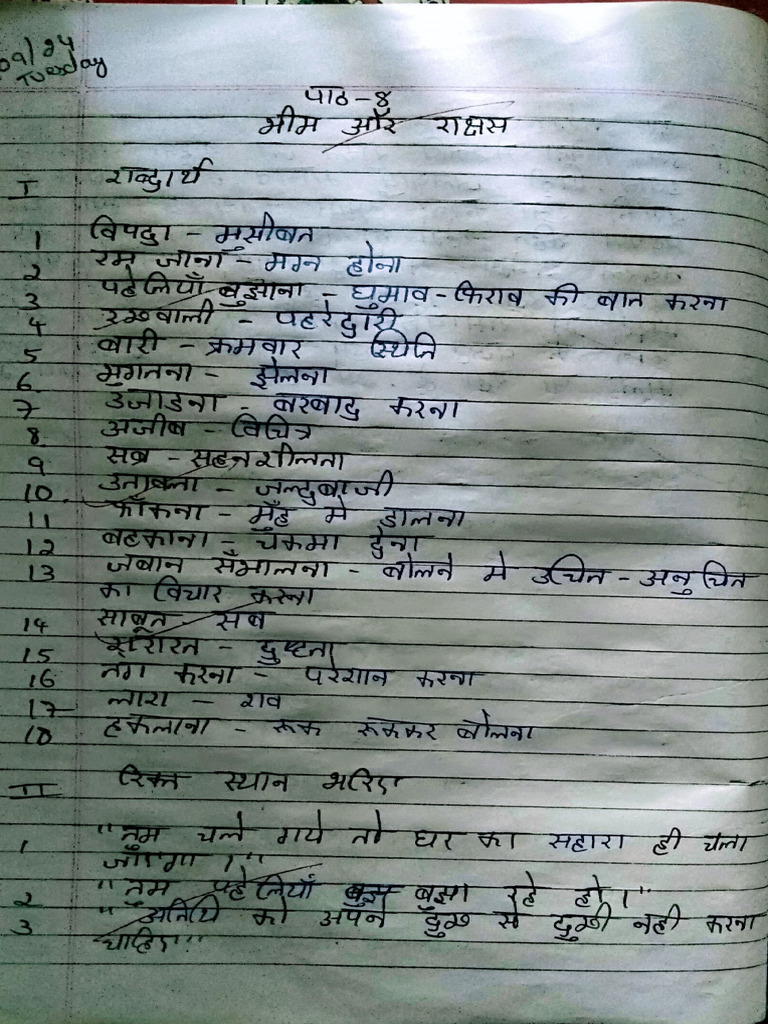 09/24
Tuesday
पाठ-8
भीम और राक्षस
I शब्दार्थ
1 विपदा - मुसीबत
2 रम जाना - मग्न होना
3 पहेलियाँ बुझाना - घुमाव-फिराव की बात करना
4 रखवाली - पहरेदारी
5 बारी - क्रमवार स्थिति
6 भुगतना - झेलना
7 उजाडना - बरबाद करना
8 अजीब - विचित्र
9 सब्र - सहनशीलता
10. उतावला - जल्दबाजी
11 फाँकना - मुँह मे डालना
12 बहकाना - चकमा देना
13 जबान सँभालना - बोलने मे उचित-अनुचित
का विचार करना
14 साबूत - सब
15 शरारत - दुष्टता
16 तंग करना - परेशान करना
17 लाश - शव
18 हकलाना - रूक रूककर बोलना
II रिक्त स्थान भरिए
1 "तुम चले गये तो घर का सहारा ही चला
जाएगा।"
2 "तुम पहेलियाँ बुझा रहे हो।"
3 "अतिथि को अपने दुख से दुखी नही करना
चाहिए"